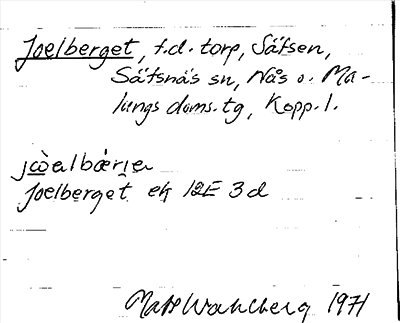 Joelberget, f.d. torp, Säfsen,
Säfsnäs sn, Nås o. Ma-
lungs doms.tg, Kopp. l.
jòalbærıa
Joelberget ek 12E 3d
Mats Wahlberg 1971